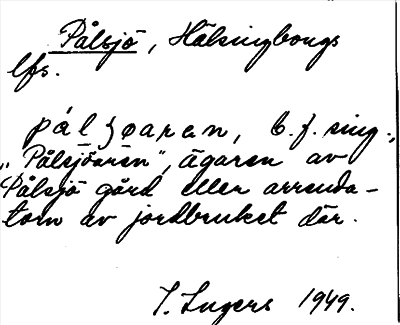 Pålsjö, Hälsingborgs
lfs.
pålʃøaren, b.f. sing.,
„Pålsjöaren”, ägaren av
Pålsjö gård eller arrenda-
torn av jordbruket där.
I. Ingers 1949.